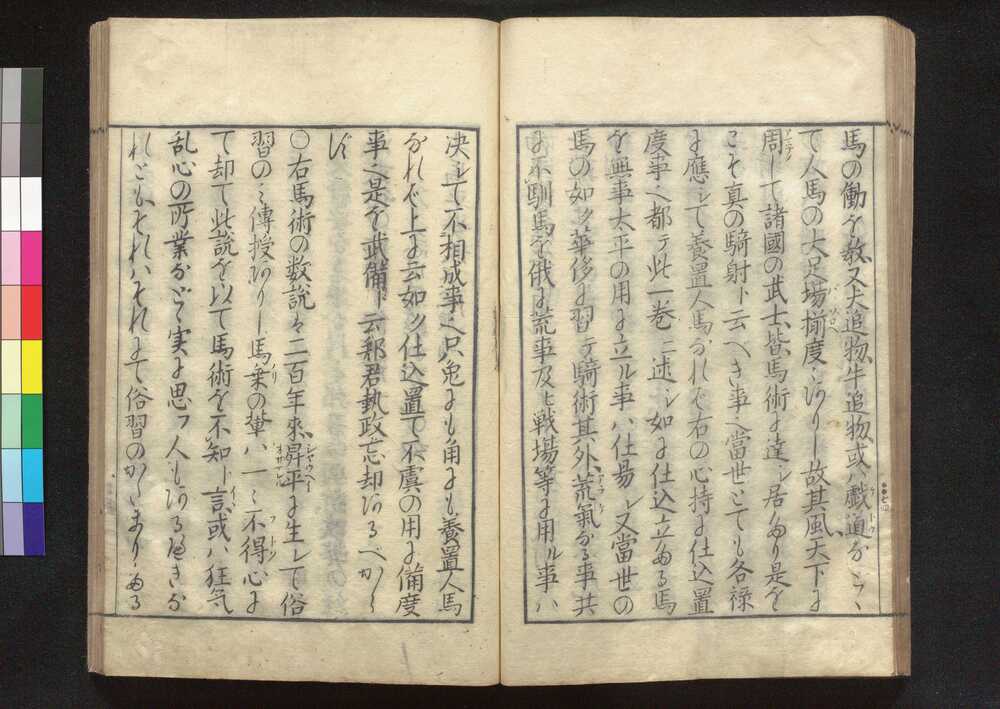 馬の働を教又犬追物牛追物或ハ戯道なとゝ
て人馬の大足場揃度々ありし故其風天下に
周して諸國の武士皆馬術に達シ居たり是を
こそ真の騎射ト云へき事也當世とても各禄
に應して養置人馬なれば右の心持に仕込置
度事也都テ此一巻ニ述シ如に仕込立たる馬
を無事太平の用に立ル事ハ仕易シ又當世の
馬の如ク華侈に習テ騎術其外荒氣なる事共
に不馴馬を俄に荒事及ヒ戦場等に用ル事ハ
決して不相成事也只兎にも角にも養置人馬
なれば上に云如ク仕込置て不虞の用に備度
事也是を武備ト云郡君執政忘却あるべから
ず
〇右馬術の数説々二百年来昇平に生レて俗
習のミ傳授ありし馬乗の輩ハ一ミ不得心に
て却て此説を以て馬術を不知ト言或ハ狂気
乱心の所業などゝ実に思フ人もあるべきな
れどもそれハそれにて俗習のかたまりたる